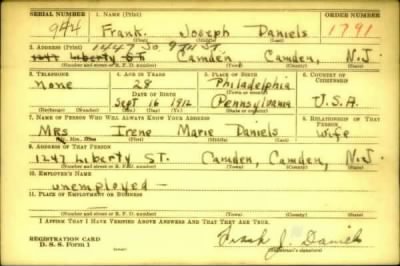 SERIAL NUMBER 1. NAME (Print) ORDER NUMBER
944 Frank Joseph Daniels 1791
2. ADDRESS (Print) 1447 So. 9th ST
1247 Liberty St Camden Camden, N.J.
(Number and street or R. F. D. number) (Town) (County) (State)
3. TELEPHONE 4. AGE IN YEARS 5. PLACE OF BIRTH 6. COUNTRY OF CITIZENSHIP
None 28 Philadelphia
DATE OF BIRTH (Town or county)
Sept 16 1912 Pennsylvania U.S.A.
(Exchange) (Number) (Mo.) (Day) (Yr.) (State or country)
7. NAME OF PERSON WHO WILL ALWAYS KNOW YOUR ADDRESS 8. RELATIONSHIP OF THAT PERSON
Mrs Irene Marie Daniels wife
(Mr., Mrs., Miss)
9. ADDRESS OF THAT PERSON
1247 Liberty ST. Camden, Camden, N.J.
(Number and street or R. F. D. number) (Town) (County) (State)
10. EMPLOYER'S NAME
unemployed —
11. PLACE OF EMPLOYMENT OR BUSINESS
(Number and street or R. F. D. number) (Town) (County) (State)
I AFFIRM THAT I HAVE VERIFIED ABOVE ANSWERS AND THAT THEY ARE TRUE.
REGISTRATION CARD
D. S. S. Form 1 Frank J. Daniels
(Registrant's signature)